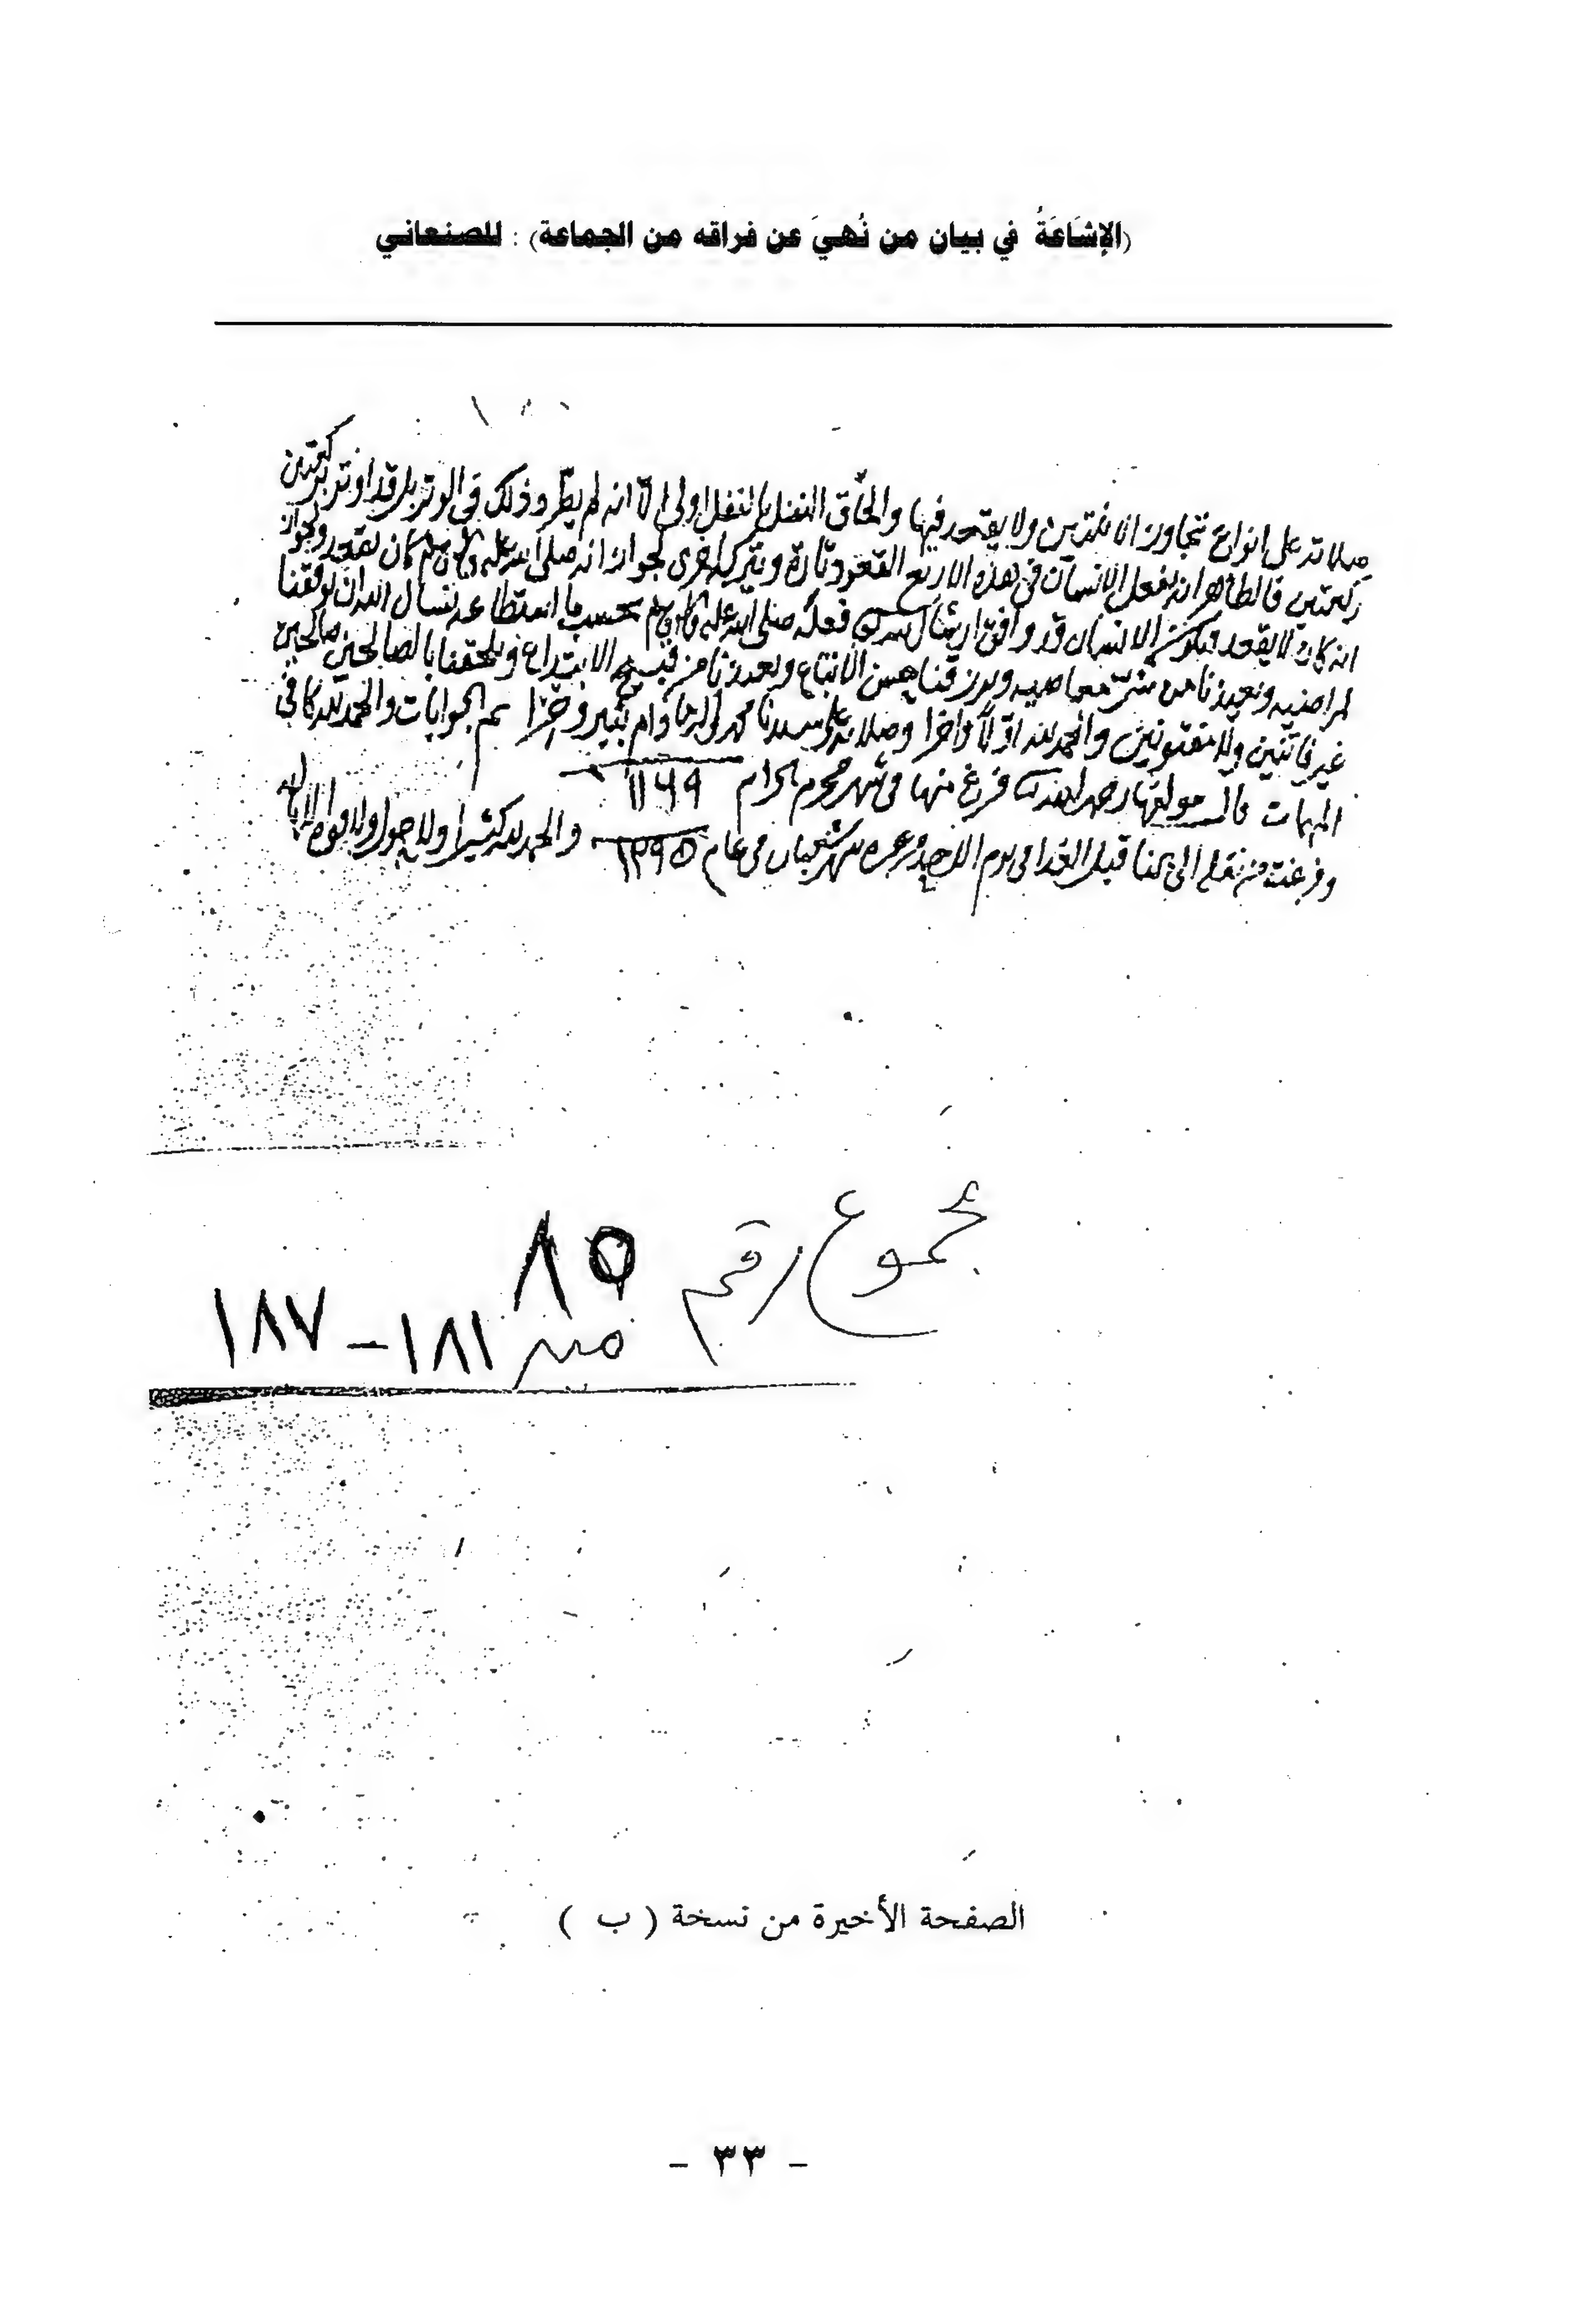 (الإشَاعَةُ في بيان من نُهيَ عن فراقه من الجماعة) : للصنعاني
صلاته على انواع تتجاوز ولا يقعد فيها والحاق النفل بالنفل اولى الا انه لم يطرد ذلك في الوتر بل قد اوتر بركعتين
ركعتين فالظاهر انه يفعل الانسان في هذه الاربع القعود تارة ويتركه اخرى لجواز انه صلى الله عليه وآله وسلم كان يقعد ولجواز
انه كان لا يقعد فيكون الانسان قد وافق فعله صلى الله عليه وآله وسلم بحسب ما استطاعه نسأل الله ان يوفقنا
لمراضيه ويعيذنا من شر معاصيه ويرزقنا حسن الاتباع ويعيذنا من قبيح الابتداع ويلحقنا بالصالحين صالحين
غير فاتنين ولا مفتونين والحمد لله اولا واخرا وصلاته على سيدنا محمد وآله ما دام تم الجوابات والحمد لله كافي
المهمات قال مولفها رحمه الله فرغ منها في شهر محرم الحرام ١١٦٩
وفرغت من نقله الى هنا قبل الغدا في يوم الاحد شهر شعبان في عام ١٣٩٥ والحمد لله كثيرا ولا حول ولا قوة الا بالله
مجموع رقم ٨٥
من ١٨١ – ١٨٧
الصفحة الأخيرة من نسخة ( ب )
- ٣٣ -